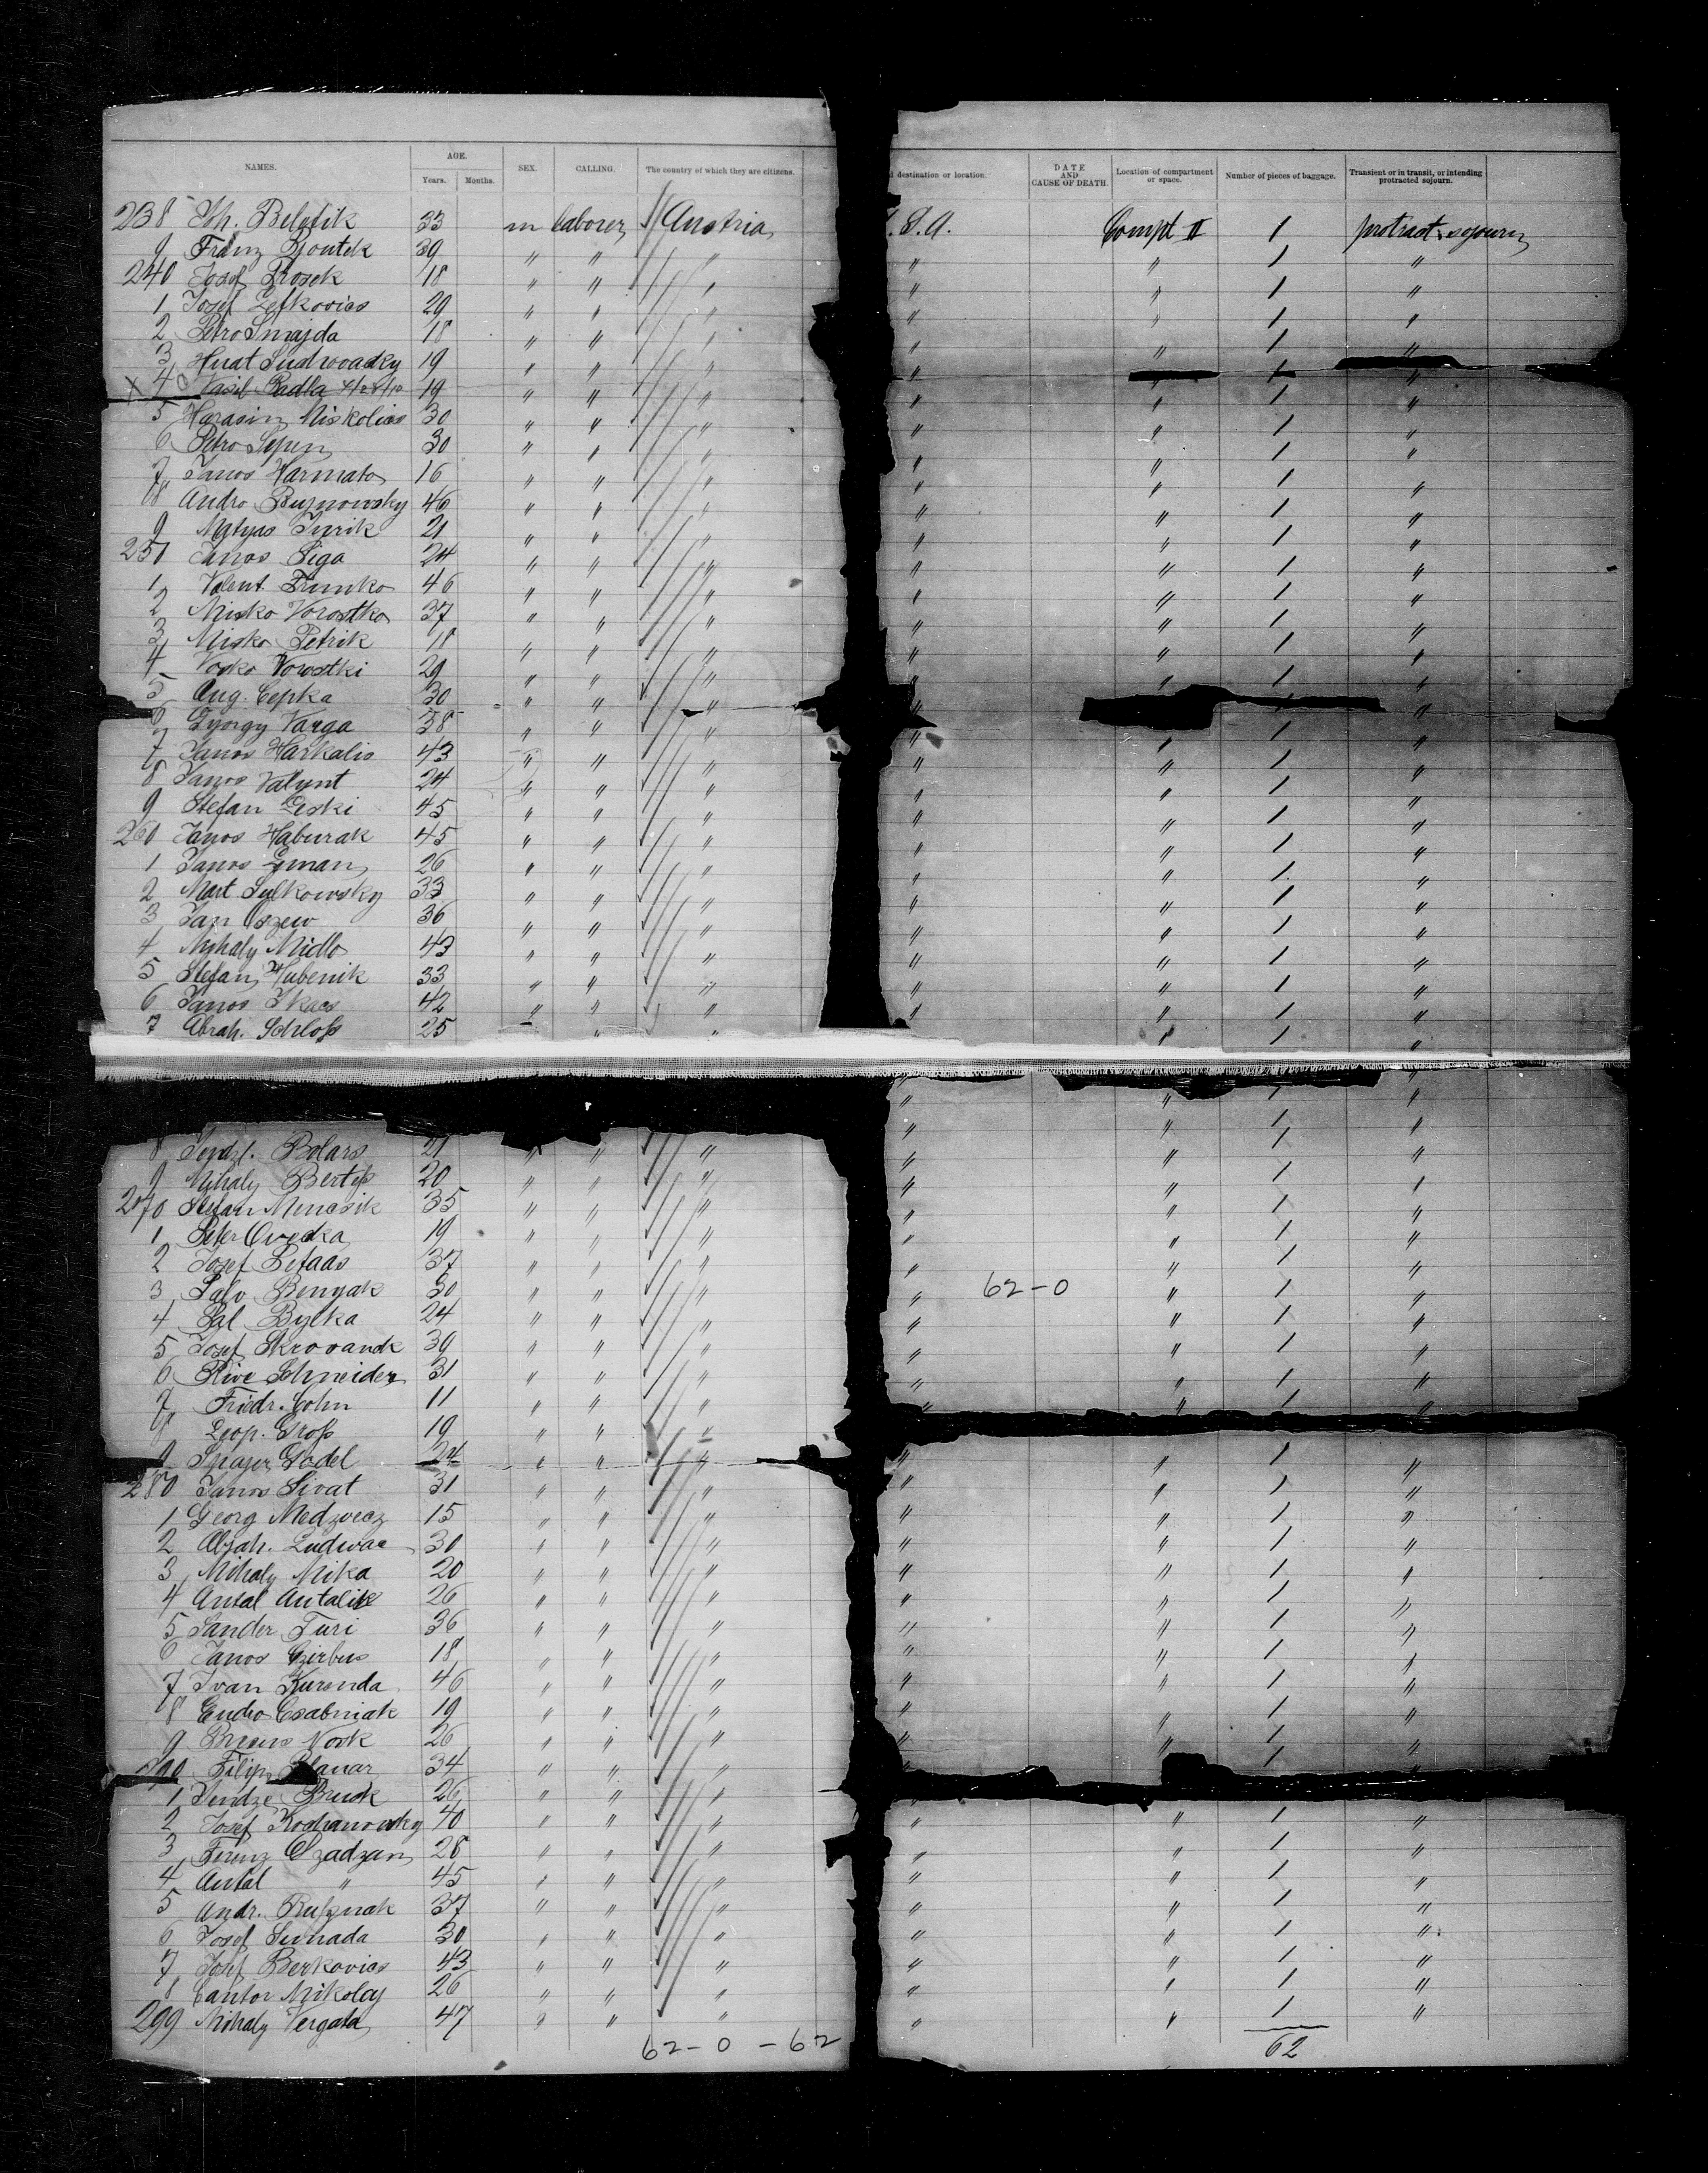 NAMES. AGE. SEX. CALLING. The country of which they are citizens. d destination or location. DATE AND CAUSE OF DEATH. Location of compartment or space. Number of pieces of baggage. Transient or in transit, or intending protracted sojourn.
Years. Months.
238 Joh. Belofik 33 m laborer Austria . S. A. Compt II 1 protract. sojourn
9 Franz 39 " " " " " 1 "
240 Josef Prosek 18 " " " " " 1 "
1 Josef Lefkovics 29 " " " " " 1 "
2 Petro Smajda 18 " " " " " 1 "
3 19 " " " " " 1 "
X 4 Vasil Padla 19 " " " " " 1 "
5 Harasin Miskolics 30 " " " " " 1 "
6 Petro 30 " " " " " 1 "
7 Janos Harmato 16 " " " " " 1 "
8 Andro Buynowsky 46 " " " " " 1 "
9 Matyas Jurik 21 " " " " " 1 "
250 Janos Siga 24 " " " " " 1 "
1 Valent Frunko 46 " " " " " 1 "
2 Misko Vorostko 37 " " " " " 1 "
3 Misko Petrik 18 " " " " " 1 "
4 Vosko Vorostki 29 " " " " " 1 "
5 Aug. Cepka 30 " " " " " 1 "
6 Gyorgy Varga 38 " " " " " 1 "
7 Janos Harkalis 43 " " " " " 1 "
8 Janos Valynt 24 " " " " " 1 "
9 Stefan Leski 45 " " " " " 1 "
260 Janos Haburak 45 " " " " " 1 "
1 Janos Eman 26 " " " " " 1 "
2 Mart Sulkowsky 33 " " " " " 1 "
3 Jan Oszew 36 " " " " " 1 "
4 Myhaly Midlo 43 " " " " " 1 "
5 Stefan Hubenik 33 " " " " " 1 "
6 Janos Tkacs 42 " " " " " 1 "
7 Abrah. Schloß 25 " " " " " 1 "
8 Bolars 21 " " " " " 1 "
9 Myhaly 20 " " " " " 1 "
270 Stefan Mencsik 35 " " " " " 1 "
1 Peter Ovecka 19 " " " " " 1 "
2 Josef Befaas 37 " " " " " 1 "
3 Palo Benyak 30 " " " " 62-0 " 1 "
4 Pal Bylka 24 " " " " " 1 "
5 Josef Skrovanek 39 " " " " " 1 "
6 Rive Schneider 31 " " " " " 1 "
7 Friedr. Cohn 11 " " " " " 1 "
8 Leop. Groß 19 " " "
9 Godel 24 " " " " " 1 "
280 Janos Sivat 31 " " " " " 1 "
1 Georg Medzvecz 15 " " " " " 1 "
2 Abrah. Ludwac 30 " " " " " 1 "
3 Mihaly Mika 20 " " " " " 1 "
4 Antal Antalik 26 " " " " " 1 "
5 Sander Turi 36 " " " " " 1 "
6 Janos Czirbus 18 " " " " " 1 "
7 Ivan Kurenda 46 " " " " " 1 "
8 Endro Csabniak 19 " " " " " 1 "
9 Vork 26 " " " " " 1 "
290 Filip Blanar 34 " " " " " 1 "
1 Brusk 26 " " "
2 Josef Koshanowsky 40 " " " " " 1 "
3 Ferenz Szadzan 28 " " " " " 1 "
4 Antal " 45 " " " " " 1 "
5 Andr. Rußnak 37 " " " " " 1 "
6 Josef Sunada 30 " " " " " 1 "
7 Josef Berkovics 43 " " " " " 1 "
8 Cantor Mikolay 26 " " " " " 1 "
299 Mihaly Vergata 47 " " " " " 1 "
62 - 0 - 62 62